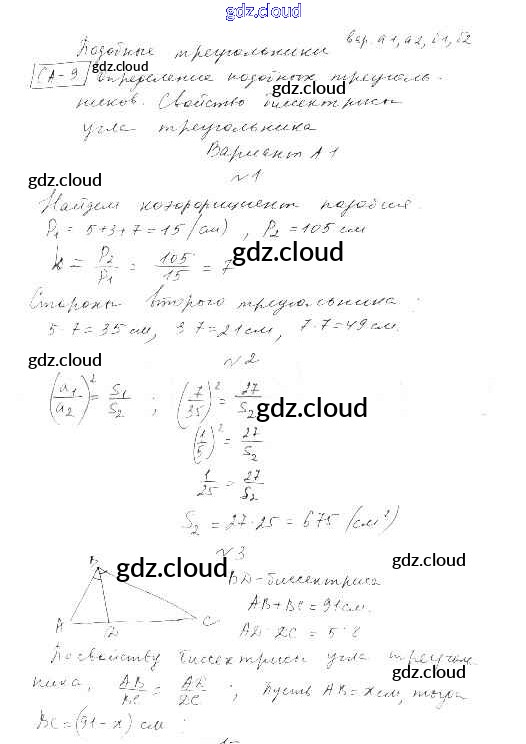 gdz.cloud
Подобные треугольники вар. А1, А2, Б1, Б2
СА-9 gdz.cloud
Определение подобных треуголь- gdz.cloud
ников. Свойство биссектрисы
угла треугольника
Вариант А1
gdz.cloud
№1
Найдем коэффициент подобия.
P₁ = 5+3+7=15 (см), P₂ = 105 см
gdz.cloud
k = P₂/P₁ = 105/15 = 7
gdz.cloud
Стороны второго треугольника:
5·7=35 см, 3·7=21 см, 7·7=49 см.
gdz.cloud
№2
(a₁/a₂)² = S₁/S₂ ; (7/35)² = 27/S₂
gdz.cloud
(1/5)² = 27/S₂
1/25 = 27/S₂
S₂ = 27·25 = 675 (см²)
№3
gdz.cloud
gdz.cloud
BD - биссектриса
AB+BC = 91 см.
A D C
По свойству биссектрисы угла треуголь-
ника, AB/BC = ; Пусть AB = x см, тогда
BC = (91-x) см
gdz.cloud